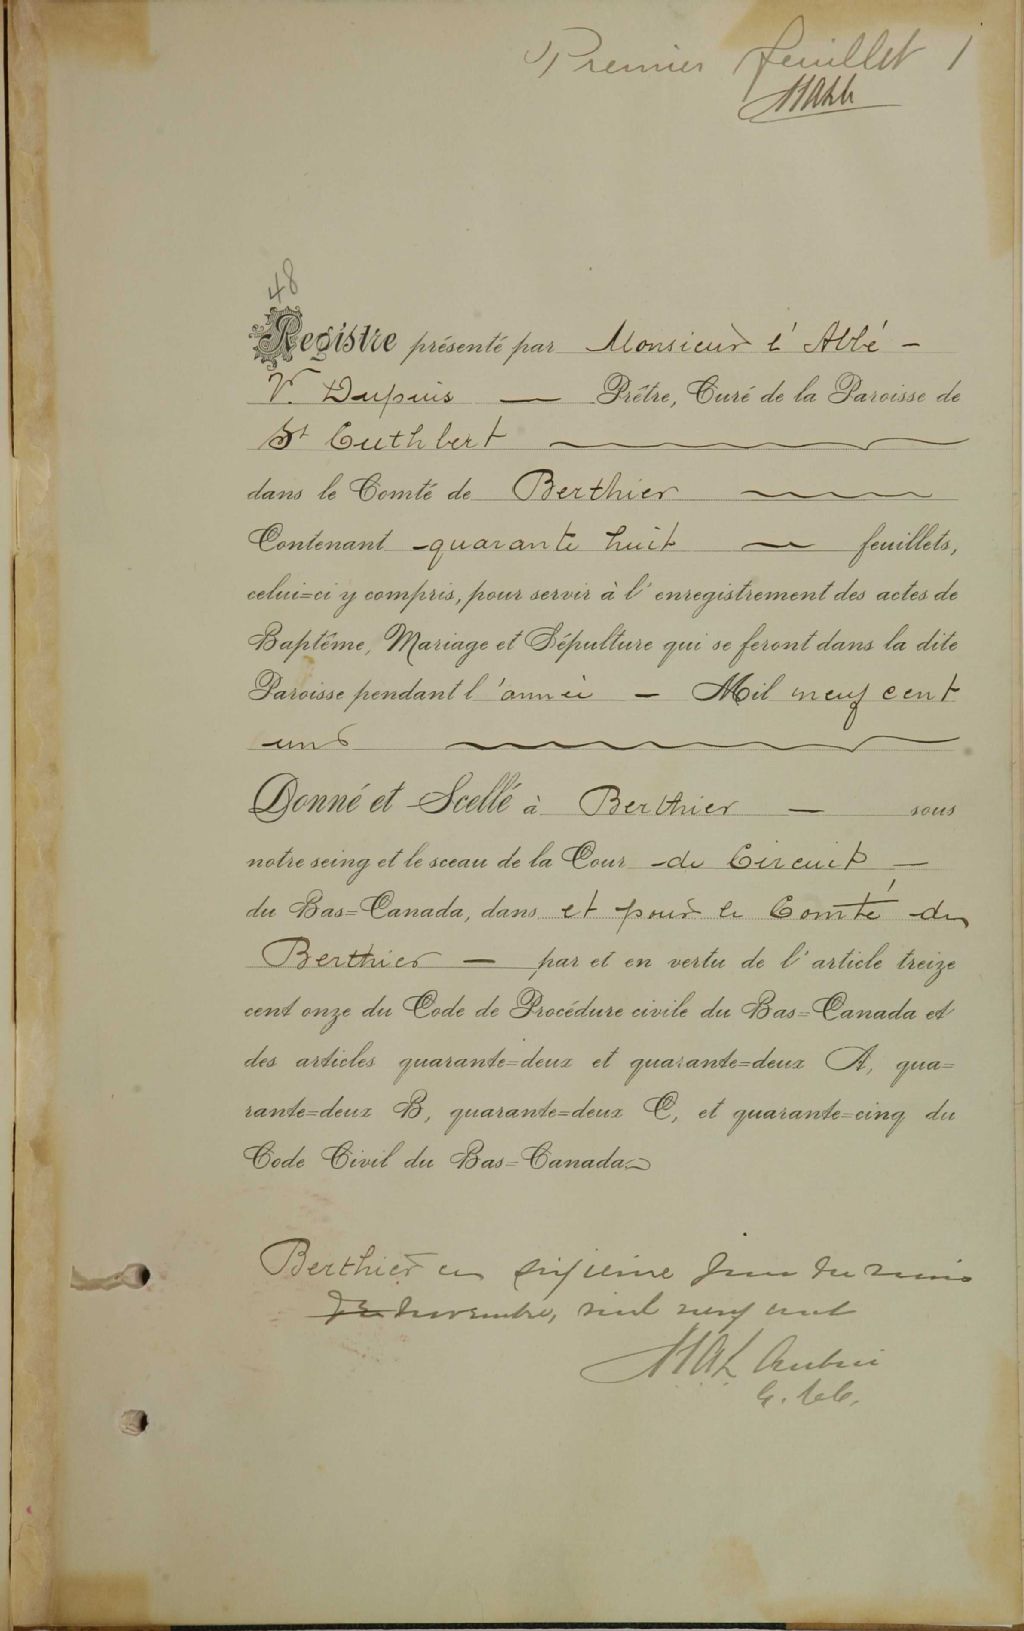 Premier feuillet 1
48
Registre présenté par Monsieur l'Abbé –
V. Dupuis — Prêtre, Curé de la Paroisse de
St Cuthbert
dans le Comté de Berthier
Contenant quarante huit — feuillets,
celui=ci y compris, pour servir à l'enregistrement des actes de
Baptême, Mariage et Sépulture qui se feront dans la dite
Paroisse pendant l'année – Mil neuf cent
un
Donné et Scellé à Berthier — sous
notre seing et le sceau de la Cour de Circuit –
du Bas=Canada, dans et pour le Comté de
Berthier — par et en vertu de l'article treize
cent onze du Code de Procédure civile du Bas=Canada et
des articles quarante=deux et quarante=deux A, qua=
rante=deux B, quarante=deux C, et quarante=cinq du
Code Civil du Bas=Canada.
Berthier ce sixième jour du mois
de novembre, mil neuf cent
Aubin